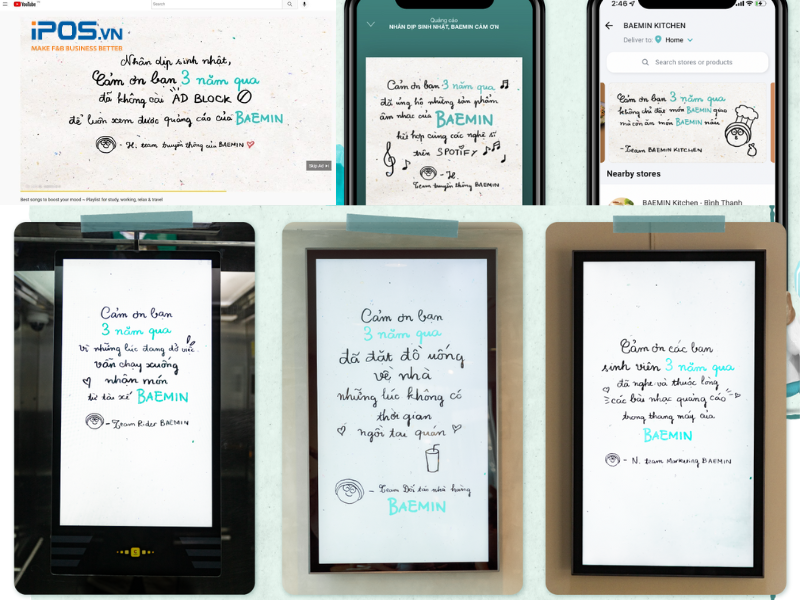 YouTube
Search
iPOS.VN
MAKE F&B BUSINESS BETTER
Nhân dịp sinh nhật,
Cảm ơn bạn 3 năm qua
đã không cài AD BLOCK
để luôn xem được quảng cáo của BAEMIN
- H. team truyền thông của BAEMIN
Skip Ad
Best songs to boost your mood ~ Playlist for study, working, relax & travel
Quảng cáo
NHÂN DỊP SINH NHẬT, BAEMIN CẢM ƠN
Cảm ơn bạn 3 năm qua
đã ủng hộ những sản phẩm
âm nhạc của BAEMIN
kết hợp cùng các nghệ sĩ
trên SPOTIFY
- H.
Team truyền thông BAEMIN
2:46
BAEMIN KITCHEN
Deliver to: Home
Search stores or products
Cảm ơn bạn 3 năm qua
không chỉ đặt món BAEMIN giao
mà còn ăn món BAEMIN nấu
- Team BAEMIN KITCHEN
Nearby stores
BAEMIN Kitchen - Bình Thạnh
Cảm ơn bạn
3 năm qua
vì những lúc đang dở việc
vẫn chạy xuống
nhận món
từ tài xế BAEMIN
- Team Rider BAEMIN
Cảm ơn bạn
3 năm qua
đã đặt đồ uống
về nhà
những lúc không có
thời gian
ngồi tại quán
- Team Đối tác nhà hàng
BAEMIN
Cảm ơn các bạn
sinh viên 3 năm qua
đã nghe và thuộc lòng
các bài nhạc quảng cáo
trong thang máy của
BAEMIN
- N. team Marketing BAEMIN